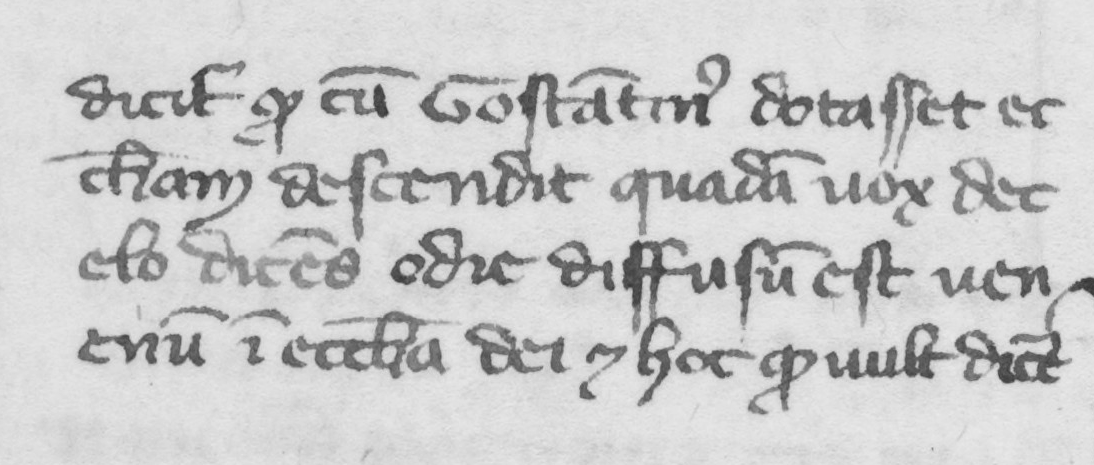 dicit͛ ꝙ cū Gostātinꝰ dotasset ec
cl̄iam descendit quadā uox dec
elo dicēs odie diffusū est uen
enū ī eccl̄ia dei ⁊ hoc ꝙ uult dicē